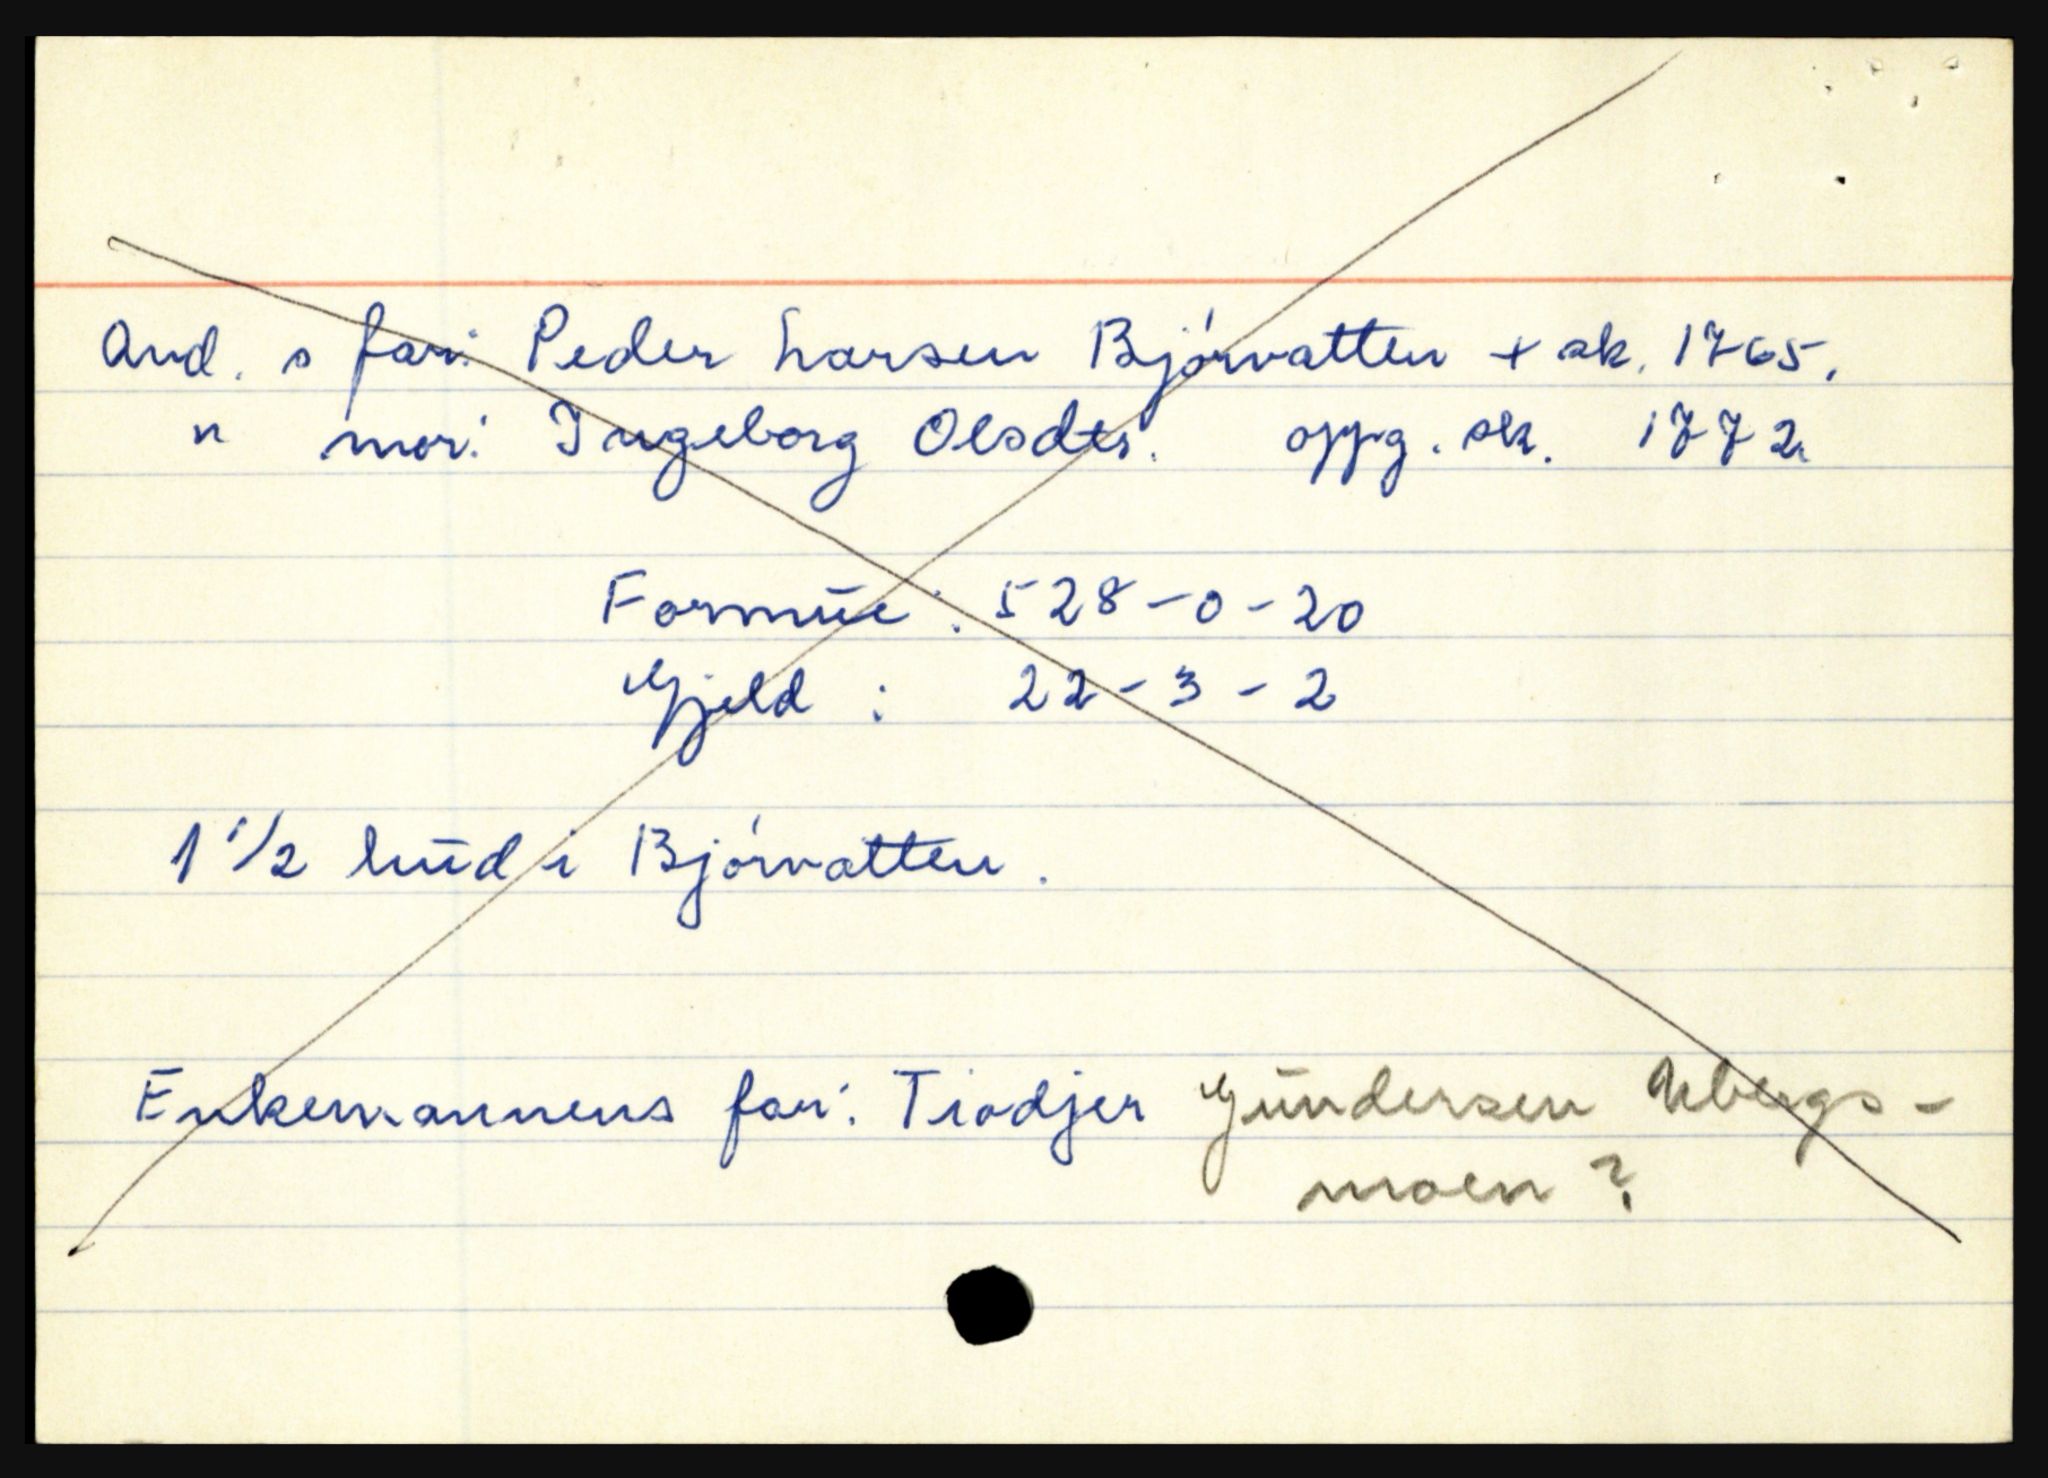 And. s far: Peder Larsen Bjórvatten + sk. 1765.
" mor: Ingeborg Olsdtr. oppg. sk. 1772
Formūe: 528-0-20
Gjeld : 22-3-2
1 1/2 hūd i Bjórvatten.
Enkemannens far: Tiodjer Gūndersen Ubergs-
moen?